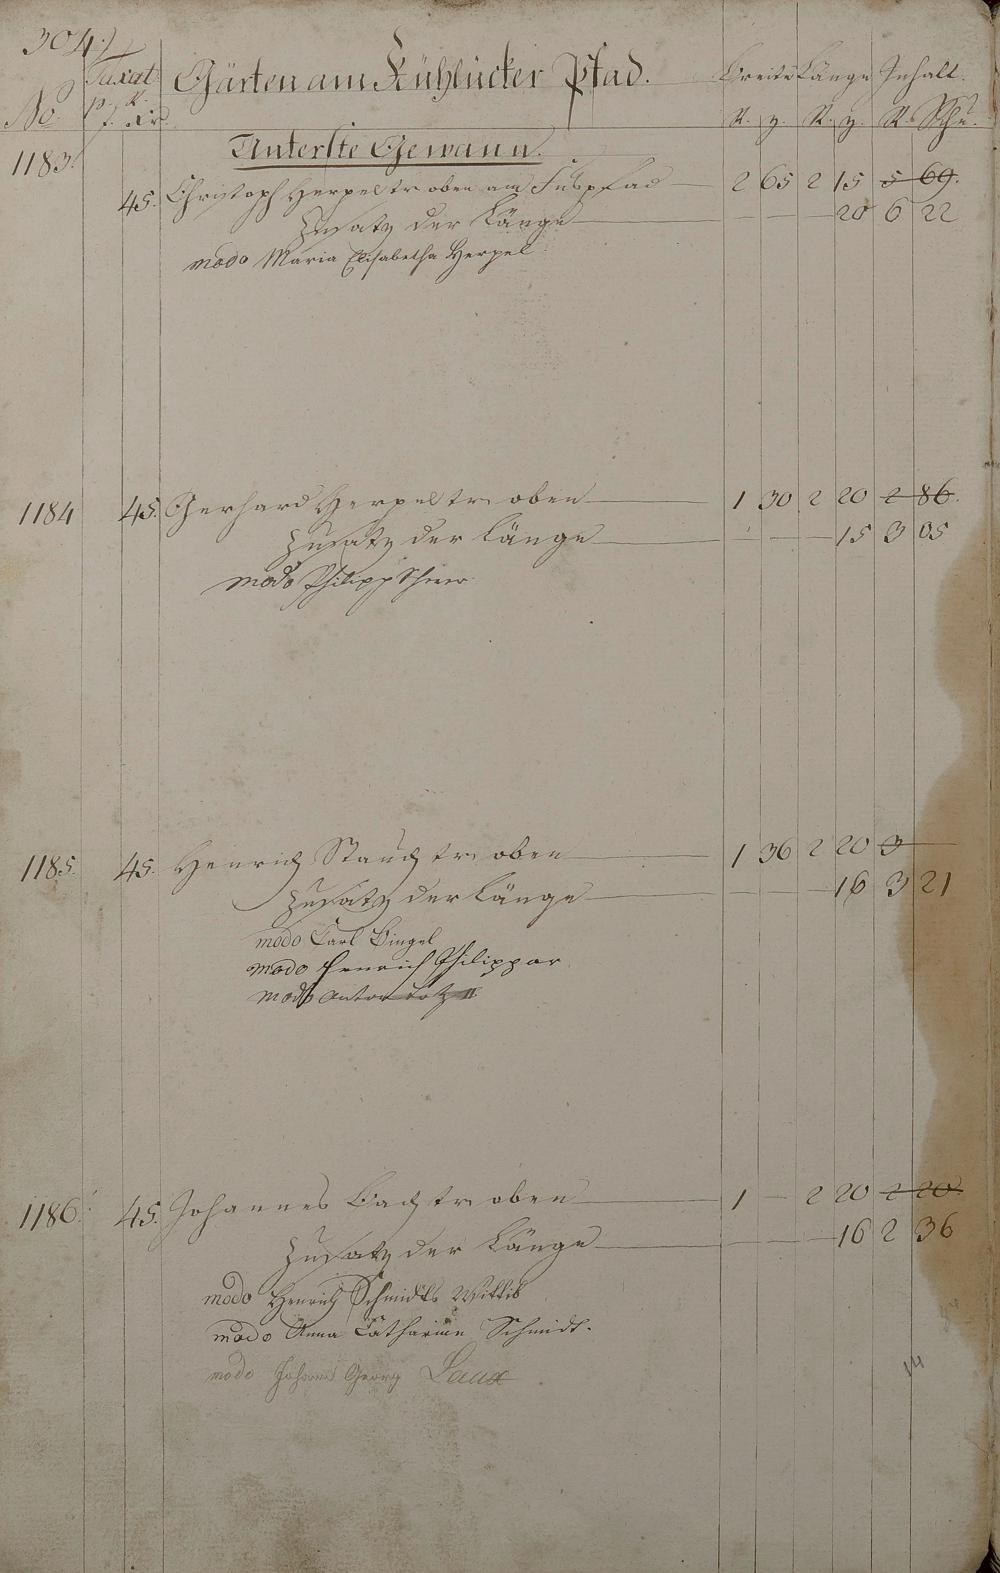 304.)
No. Taxat p. R. f. Xr. Gärten am Kühlücker Pfad. Breite Länge Inhalt.
R. z. R. z. R. Schu.
Unterste Gewann.
1183. 45. Christoph Herpel tr. oben am Fuspfad 2 65 2 15 5 69.
Zusatz der Länge 20 6 22
modo Maria Elisabetha Herpel
1184 45. Gerhard Herpel tr. oben 1 30 2 20 2 86.
Zusatz der Länge 15 3 05
modo Philipp
1185. 45. Henrich Stauch tr. oben 1 36 2 20 3
Zusatz der Länge 16 3 21
modo Carl Bingel
modo Henrich Philippar
modo Anton Lotz II
1186. 45. Johannes Bach tr. oben 1 2 20 2 20
Zusatz der Länge 16 2 36
modo Henrich Schmidts Wittib
modo Anna Catharine Schmidt.
modo Johannes Georg Laux